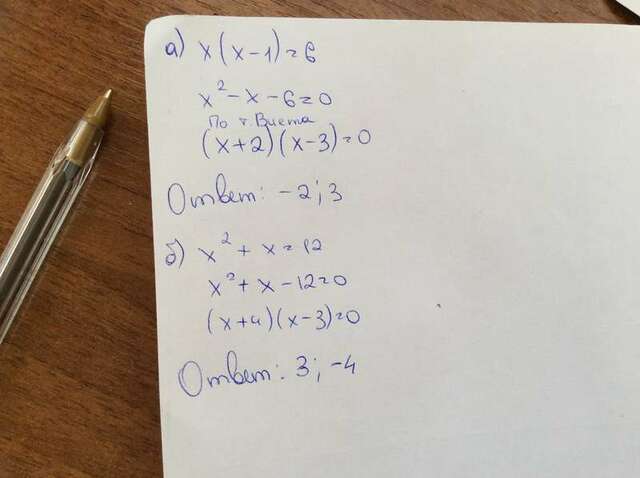 а) x(x-1)=6
x²-x-6=0
По т. Виета
(x+2)(x-3)=0
Ответ: -2; 3
б) x²+x=12
x²+x-12=0
(x+4)(x-3)=0
Ответ: 3; -4